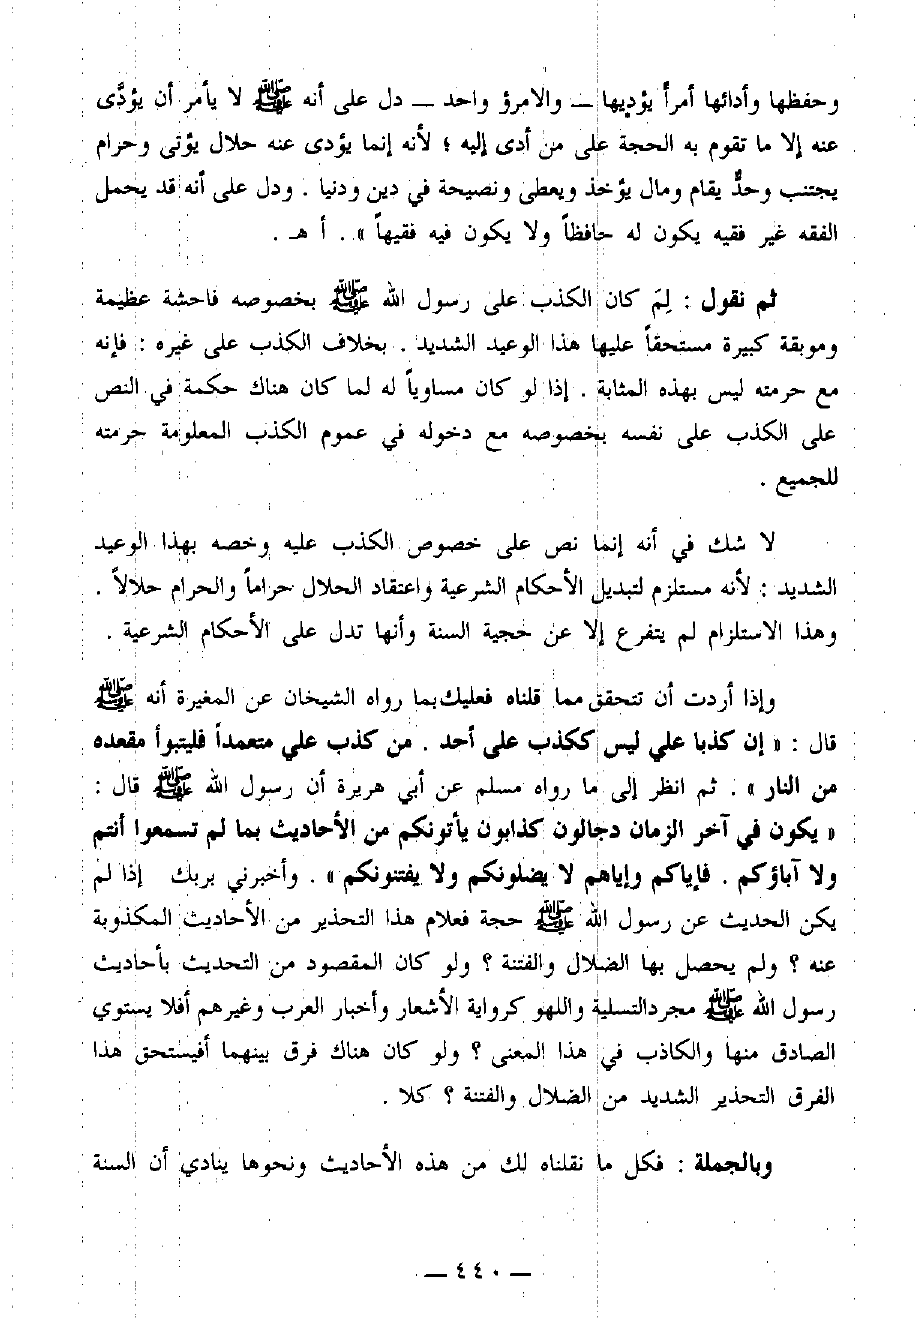 وحفظها وأدائها أمرأً يؤديها — والامرؤ واحد — دل على أنه ﷺ لا يأمر أن يؤدَّى
عنه إلا ما تقوم به الحجة على من أدى إليه ؛ لأنه إنما يؤدى عنه حلال يؤتى وحرام
يجتنب وحدٌّ يقام ومال يؤخذ ويعطى ونصيحة في دين ودنيا . ودل على أنه قد يحمل
الفقه غير فقيه يكون له حافظاً ولا يكون فيه فقيهاً » . أ هـ .
ثم نقول : لِمَ كان الكذب على رسول الله ﷺ بخصوصه فاحشة عظيمة
وموبقة كبيرة مستحقاً عليها هذا الوعيد الشديد . بخلاف الكذب على غيره : فإنه
مع حرمته ليس بهذه المثابة . إذا لو كان مساوياً له لما كان هناك حكمة في النص
على الكذب على نفسه بخصوصه مع دخوله في عموم الكذب المعلومة حرمته
للجميع .
لا شك في أنه إنما نص على خصوص الكذب عليه وخصه بهذا الوعيد
الشديد : لأنه مستلزم لتبديل الأحكام الشرعية واعتقاد الحلال حراماً والحرام حلالاً .
وهذا الاستلزام لم يتفرع إلا عن حجية السنة وأنها تدل على الأحكام الشرعية .
وإذا أردت أن تتحقق مما قلناه فعليك بما رواه الشيخان عن المغيرة أنه ﷺ
قال : « إن كذبا علي ليس ككذب على أحد . من كذب علي متعمداً فليتبوأ مقعده
من النار » . ثم انظر إلى ما رواه مسلم عن أبي هريرة أن رسول الله ﷺ قال :
« يكون في آخر الزمان دجالون كذابون يأتونكم من الأحاديث بما لم تسمعوا أنتم
ولا آباؤكم . فإياكم وإياهم لا يضلونكم ولا يفتنونكم » . وأخبرني بربك إذا لم
يكن الحديث عن رسول الله ﷺ حجة فعلام هذا التحذير من الأحاديث المكذوبة
عنه ؟ ولم يحصل بها الضلال والفتنة ؟ ولو كان المقصود من التحديث بأحاديث
رسول الله ﷺ مجردالتسلية واللهو كرواية الأشعار وأخبار العرب وغيرهم أفلا يستوي
الصادق منها والكاذب في هذا المعنى ؟ ولو كان هناك فرق بينهما أفيستحق هذا
الفرق التحذير الشديد من الضلال والفتنة ؟ كلا .
وبالجملة : فكل ما نقلناه لك من هذه الأحاديث ونحوها ينادي أن السنة
— ٤٤٠ —